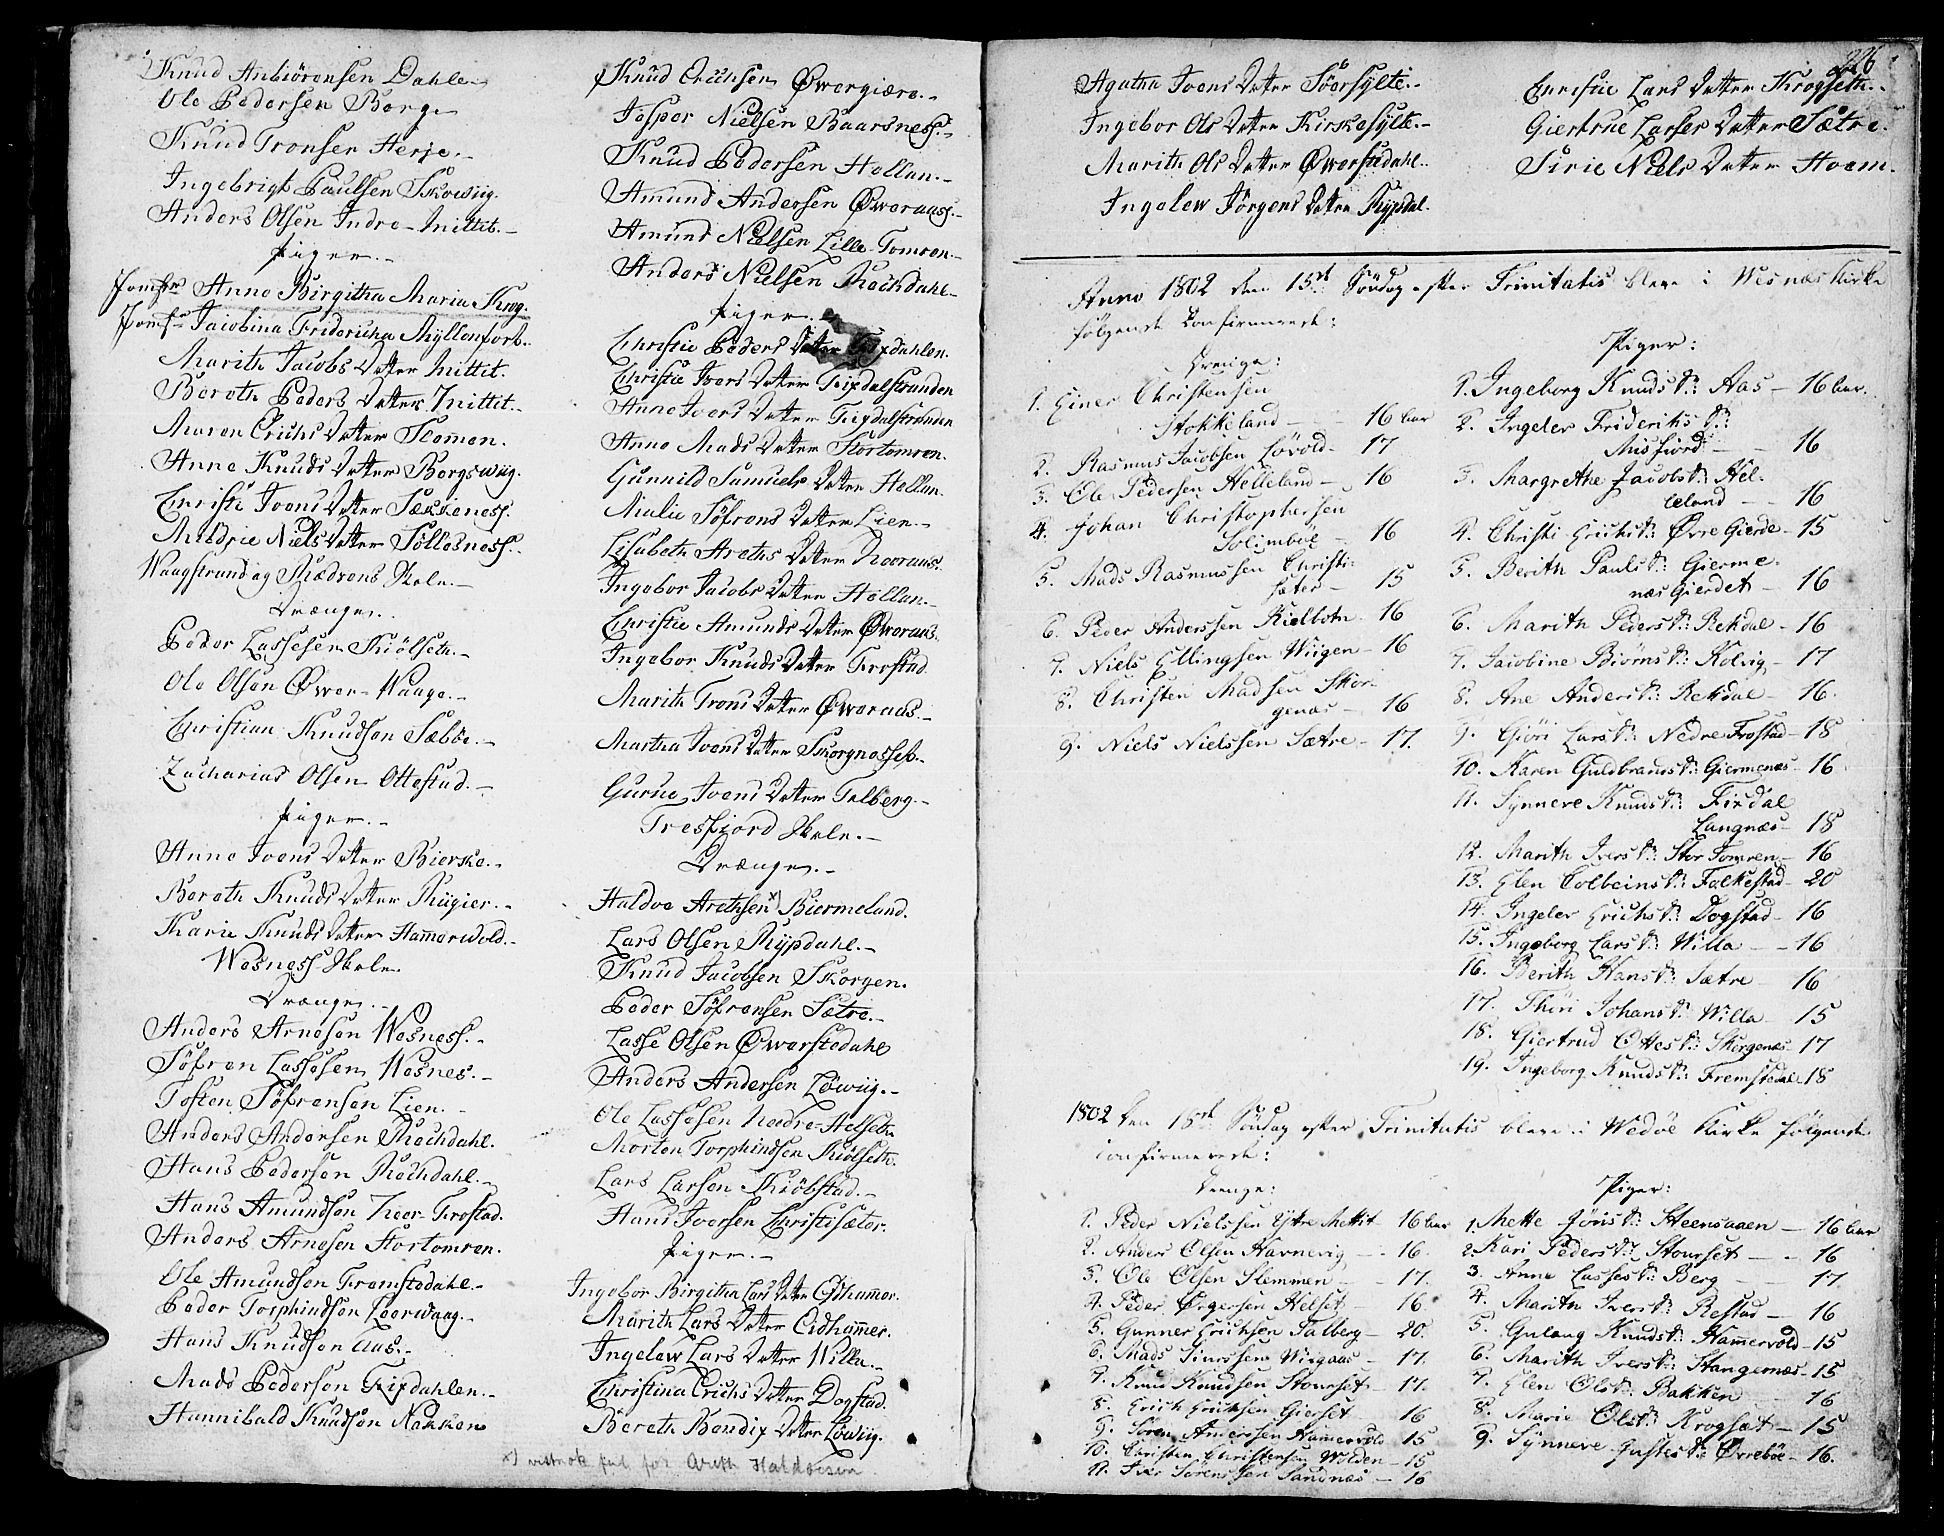 Knud Anbiörensen Dahle.-
Ole Pedersen Borge
Knud Tronsen Herje.-
Ingebrigt Paulsen Skowiig.
Anders Olsen Indre-Mittet.-
Piger.-
Jomfr Anne Birgitha Maria Krog.
Jomfr Jacobina Friderícha Myllenfort.
Marith Jacobs Datter Mittet.
Bereth Peders Datter Mittet.-
Maren Erichs Datter Slemen.
Anne Knuds Datter Borgswiig.
Christi Ivers Datter Sækkenes.
Mildrie Niels Datter Söllesness.-
Waagstrand og Rædvens Skole.-
Drænge.
Peder Lassesen Kiölseth.-
Ole Olsen Öwer-Waage.-
Christian Knudsen Sæböe.-
Zacharias Olsen Ottestad.-
Piger.-
Anne Ivers Datter Bierske.-
Bereth Knuds Datter Rügier.-
Karie Knuds Datter Hamerwold.-
Wesness Skole.
Drænge.-
Anders Arnesen Wesness.-
Söfren Lassesen Wesnes.-
Tosten Söfrensen Lien.-
Anders Andersen Rochdahl.
Hans Pedersen Rochdahl.-
Hans Amundsen Neer-Frostad.
Anders Arnesen Stortomren.
Ole Amundsen Fremstedahl.-
Peder Torphindsen Leerwaag.-
Hans Knudsen Aas.-
Mads Pedersen Fixdahlen.-
Hannibald Knudsen Nakken
Knud Erichsen Öwergiære.-
Jesper Nielsen Baarsness.-
Knud Pedersen Hellan.-
Amund Andersen Öweraas.-
Amund Nielsen Lille-Tomren.-
Anders Nielsen Rochdahl.-
Piger.-
Christie Peders Datter Fixdahlen.
Christie Ivers Datter Fixdalstranden
Anne Ivers Datter Fixdalstranden
Anne Mads Datter Stortomren.
Gunnild Samuels Datter Hellan.
Malie Söfrens Datter Lien.-
Lisabeth Areths Datter Neeraas.
Ingebor Jacobs Datter Hellan.-
Christie Amunds Datter Öweraas.
Ingebor Knuds Datter Frostad.
Marith Trons Datter Öweraas.-
Martha Ivers Datter Skorgnesset.-
Gurue Ivers Datter Talberg.-
Tresfjord Skole.-
Drænge.-
Haldoe Arethsen x) Biermeland.
Lars Olsen Rypdahl.-
Knud Jacobsen Skorgen.
Peder Söfrensen Sætre.-
Lasse Olsen Öwerstedahl
Anders Andersen Löwiig.-
Ole Lassesen Nedre-Helseth
Morten Torphindsen Kiölseth.
Lars Larsen Kiöbstad.-
Hans Iversen Christisæter.
Piger.-
Ingebor Birgitha Lars Datter Eidhammer.
Marith Lars Datter Eidhammer.
Ingelew Lars Datter Willa.-
Christina Erichs Datter Dogstad.
Bereth Bendix Datter Löwiig.
x) vistnok feil for Areth Haldorsen
226
Agatha Ivers Datter Söersylte.-
Ingebor Ols Datter Kirkesylte.-
Marith Ols Datter Öwerstedahl.
Ingelew Jörgens Datter Rypdal.
Christie Lars Datter Krogseth.-
Giertrue Larses Datter Sætre.
Sirie Niels Datter Hoem.
Anno 1802 den 15de Söndag efter Trinitatis bleve i Wesnæs Kirke
følgende Confirmerede:
Drenge:
1. Einer Christensen
Stokkeland - 16 aar
2. Rasmus Jacobsen Lövold - 17
3. Ole Pedersen Helleland - 16
4. Johan Christophersen
Solimboe - 16
5. Mads Rasmussen Christi-
sæter - 15
6. Peder Anderssen Kielbotn - 16
7. Niels Ellingsen Wiigen - 16
8. Christen Madsen Skor-
genæs - 16
9. Niels Nielssen Sætre - 17.
Piger:
1. Ingeborg Knudsd: Aas - 16 aar.
2. Ingeler Frideriksd:
Misfiord - 16
3. Margrethe Jacobsd: Hel-
leland - 16
4. Christi Erichsd: Øvre Gierde - 15
5. Berith Paulsd: Gierme-
næs Gierdet - 16
6. Marith Pedersd: Rekdal - 16
7. Jacobine Biörnsd: Kolvig - 17
8. Ane Andersd: Rekdal - 16.
9. Giöri Larsd: Nedre Frostad - 18
10. Karen Guldbrandsd: Giermenæs - 16
11. Synneve Knudsd: Fixdal
Langnæs - 18
12. Marith Iversd: Stor Tomren - 16
13. Elen Colbeinsd: Falkestad - 20
14. Ingeler Erichsd: Dogstad - 16
15. Ingeborg Larsd: Willa - 16
16. Berith Hansd: Sætre - 16
17. Thöri Johansd: Willa 15
18. Giertrud Ottesd: Skorgenæs 17
19. Ingeborg Knudsd: Fremstedal 18
1802 den 18de Söndag efter Trinitatis bleve i Wedöe Kirke følgende
confirmerede:
Drenge:
1. Peder Nielssen Ytre Mettit 16 aar
2. Anders Olsen Havnevig - 16.
3. Ole Olsen Slemmen - 17.
4. Peder Örgersen Helset - 16.
5. Gunner Erichsen Talberg - 20.
6. Mads Siurssen Wiigaas - 17.
7. Knud Knudsen Stourset - 17.
8. Erich Erichsen Gierset 16
9. Sören Anderssen Hamervold 15
10. Christen Christensen Wolden - 15
11. Iver Sörenssen Sandnæs - 16
Piger:
1. Mette Jörisd: Steensaaen - 16 aar
2. Kari Pedersd: Stourset - 16
3. Anne Lassesd: Berg - 17.
4. Marith Iversd: Restad - 16
5. Gulaug Knudsd: Hamervold - 15
6. Marith Iversd: Stangernæs - 15
7. Elen Olsd: Bakken 16
8. Marie Olsd: Krogsæt - 15
9. Synneve Gustesd: Övreböe - 16.